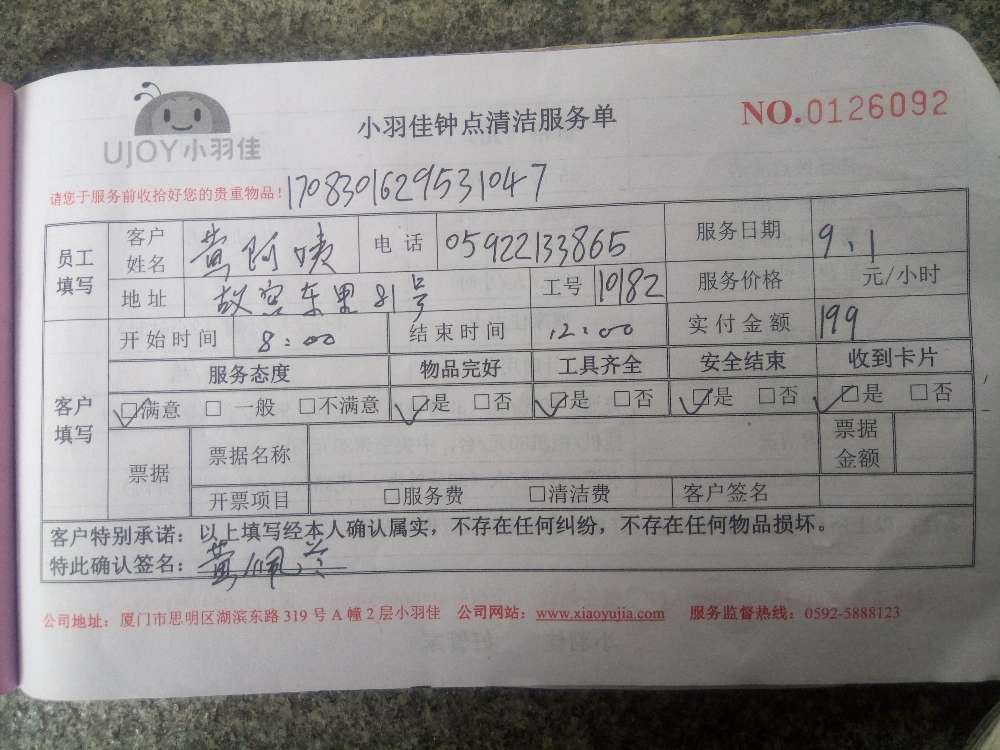 UJOY小羽佳
小羽佳钟点清洁服务单
NO.0126092
请您于服务前收拾好您的贵重物品！
1708301629531047
员工填写 客户姓名 黄阿姨 电话 05922133865 服务日期 9.1
地址 故宫东里81号 工号 10182 服务价格 元/小时
客户填写 开始时间 8:00 结束时间 12:00 实付金额 199
服务态度 物品完好 工具齐全 安全结束 收到卡片
☑满意 □ 一般 □不满意 ☑是 □否 ☑是 □否 ☑是 □否 ☑是 □否
票据 票据名称 票据金额
开票项目 □服务费 □清洁费 客户签名
客户特别承诺：以上填写经本人确认属实，不存在任何纠纷，不存在任何物品损坏。
特此确认签名：黄佩
公司地址：厦门市思明区湖滨东路 319 号 A 幢 2 层小羽佳 公司网站：www.xiaoyujia.com 服务监督热线：0592-5888123